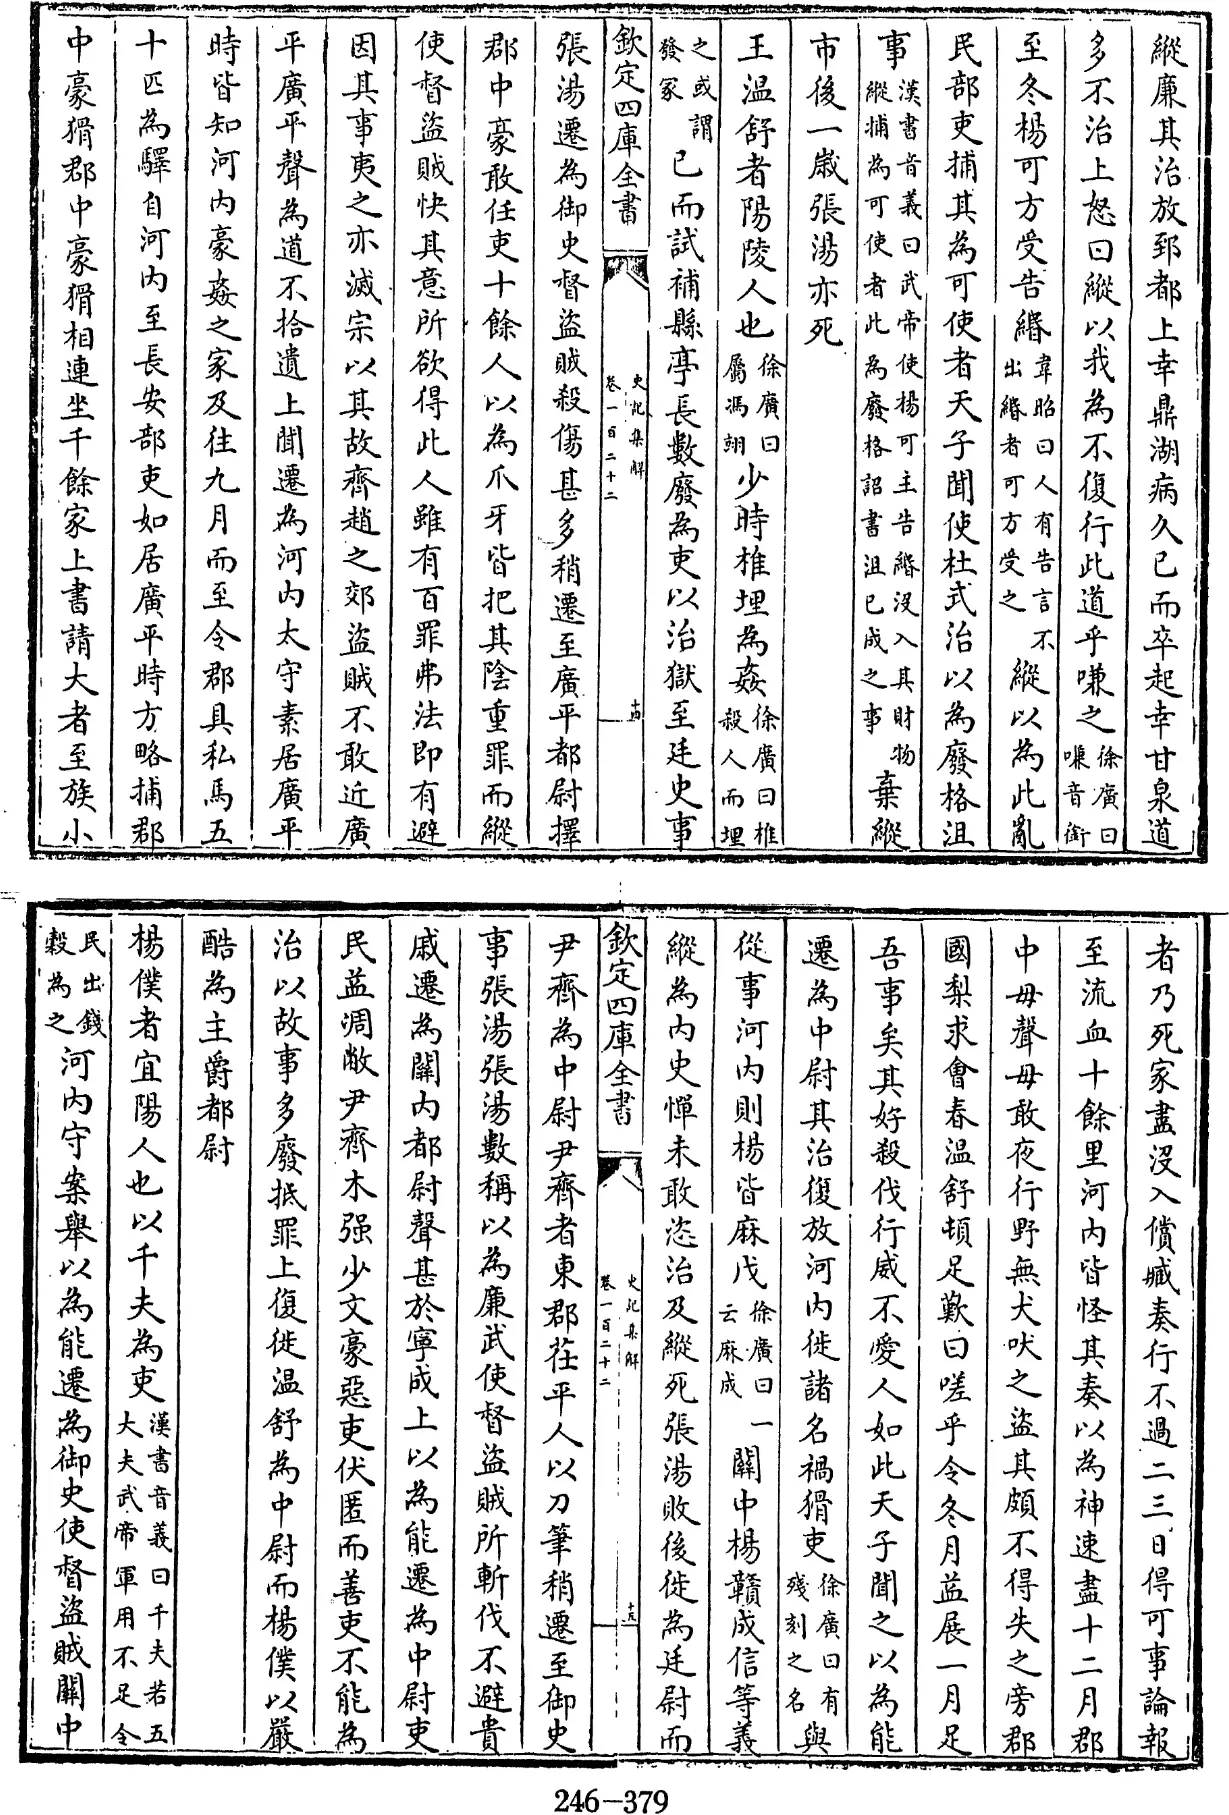 縱廉其治放郅都上幸鼎湖病久已而卒起幸甘泉道
多不治上怒曰縱以我為不復行此道乎嗛之徐廣曰嗛音銜
至冬楊可方受告緡韋昭曰人有告言不出緡者可方受之縱以為此亂
民部吏捕其為可使者天子聞使杜式治以為廢格沮
事漢書音義曰武帝使楊可主告緡沒入其財物縱捕為可使者此為廢格詔書沮已成之事棄縱
市後一歲張湯亦死
王溫舒者陽陵人也徐廣曰屬馮翊少時椎埋為姦徐廣曰椎殺人而埋
之或謂發冢已而試補縣亭長數廢為吏以治獄至廷史事
欽定四庫全書
史記集解
卷一百二十二
十四
張湯遷為御史督盜賊殺傷甚多稍遷至廣平都尉擇
郡中豪敢任吏十餘人以為爪牙皆把其陰重罪而縱
使督盜賊快其意所欲得此人雖有百罪弗法即有避
因其事夷之亦滅宗以其故齊趙之郊盜賊不敢近廣
平廣平聲為道不拾遺上聞遷為河內太守素居廣平
時皆知河內豪姦之家及往九月而至令郡具私馬五
十匹為驛自河內至長安部吏如居廣平時方略捕郡
中豪猾郡中豪猾相連坐千餘家上書請大者至族小
者乃死家盡沒入償臧奏行不過二三日得可事論報
至流血十餘里河內皆怪其奏以為神速盡十二月郡
中毋聲毋敢夜行野無犬吠之盜其頗不得失之旁郡
國梨求會春溫舒頓足歎曰嗟乎令冬月益展一月足
吾事矣其好殺伐行威不愛人如此天子聞之以為能
遷為中尉其治復放河內徙諸名禍猾吏徐廣曰有殘刻之名與
從事河內則楊皆麻戊徐廣曰一云麻成關中楊贛成信等義
縱為內史憚未敢恣治及縱死張湯敗後徙為廷尉而
欽定四庫全書
史記集解
卷一百二十二
十五
尹齊為中尉尹齊者東郡茌平人以刀筆稍遷至御史
事張湯張湯數稱以為廉武使督盜賊所斬伐不避貴
戚遷為關內都尉聲甚於寧成上以為能遷為中尉吏
民益凋敝尹齊木强少文豪惡吏伏匿而善吏不能為
治以故事多廢抵罪上復徙溫舒為中尉而楊僕以嚴
酷為主爵都尉
楊僕者宜陽人也以千夫為吏漢書音義曰千夫若五大夫武帝軍用不足令
民出錢穀為之河內守案舉以為能遷為御史使督盜賊關中
246-379